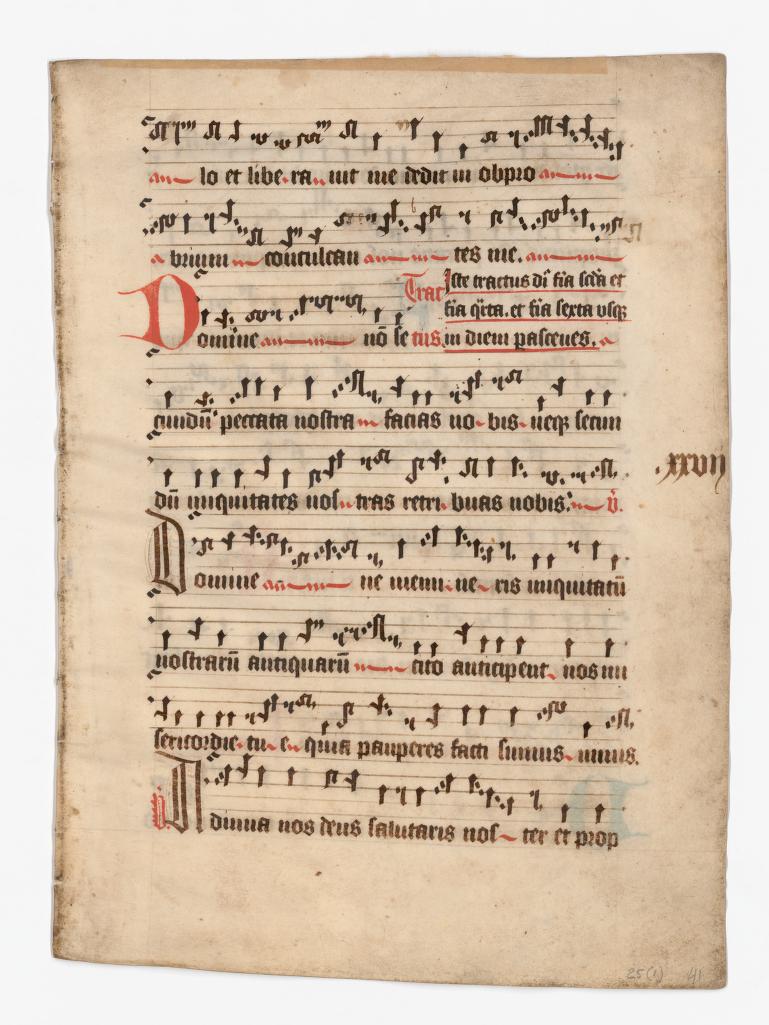 lo et libe-ra uit me dedit in obpro
brium conculcan tes me.
Trac Iste tractus dī fīa scd̄a et
fīa q̄rta. et fīa sexta vsq̨
Domine nō se tus. in diem pascenes.
cundū peccata nostra facias no-bis-neq̨ secun
dū iniquitates nos-tras retri-buas nobis: v̄.
Domine ne memi-ne-ris iniquitatū
nostrarū antiquarū cito anticipent nos mi
sericordie-tu-e-quia pauperes facti sumus-nimis.
v̄. Adiuua nos deus salutaris nos-ter et prop
.xxvij
25(1) 41